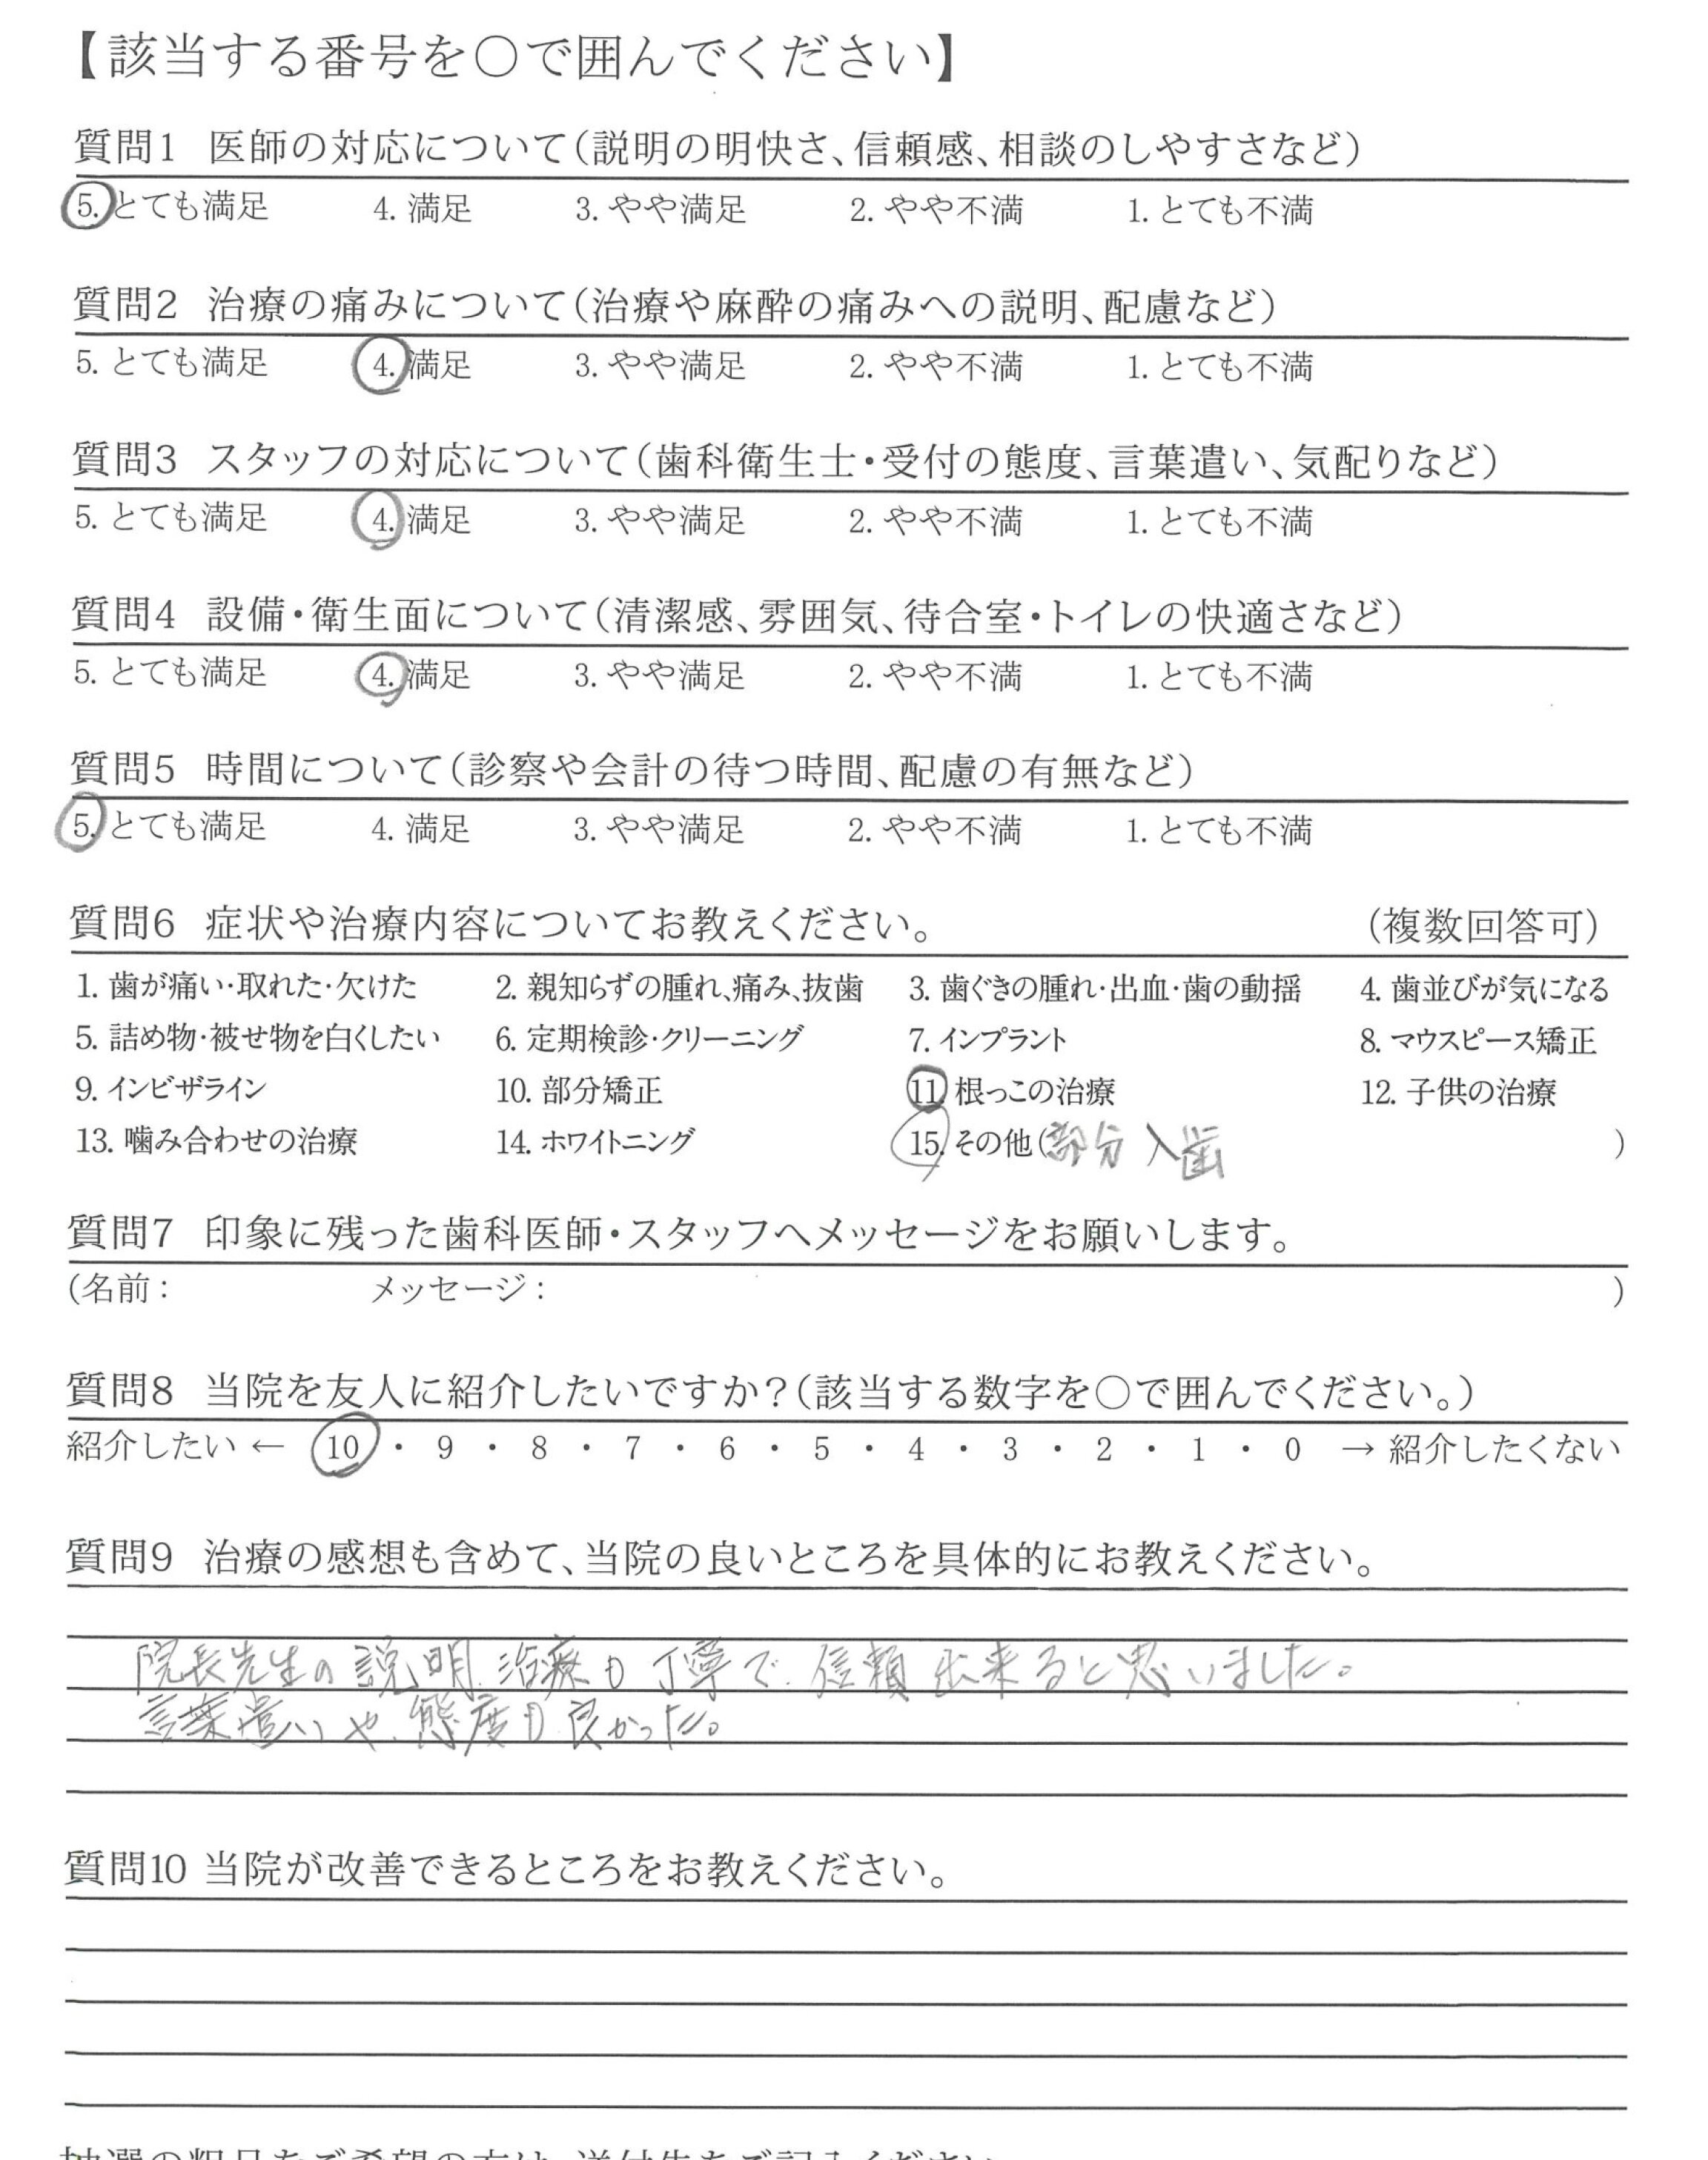 【該当する番号を○で囲んでください】
質問1 医師の対応について(説明の明快さ、信頼感、相談のしやすさなど)
5. とても満足 4. 満足 3. やや満足 2. やや不満 1. とても不満
質問2 治療の痛みについて(治療や麻酔の痛みへの説明、配慮など)
5. とても満足 4. 満足 3. やや満足 2. やや不満 1. とても不満
質問3 スタッフの対応について(歯科衛生士・受付の態度、言葉遣い、気配りなど)
5. とても満足 4. 満足 3. やや満足 2. やや不満 1. とても不満
質問4 設備・衛生面について(清潔感、雰囲気、待合室・トイレの快適さなど)
5. とても満足 4. 満足 3. やや満足 2. やや不満 1. とても不満
質問5 時間について(診察や会計の待つ時間、配慮の有無など)
5. とても満足 4. 満足 3. やや満足 2. やや不満 1. とても不満
質問6 症状や治療内容についてお教えください。 (複数回答可)
1. 歯が痛い・取れた・欠けた 2. 親知らずの腫れ、痛み、抜歯 3. 歯ぐきの腫れ・出血・歯の動揺 4. 歯並びが気になる
5. 詰め物・被せ物を白くしたい 6. 定期検診・クリーニング 7. インプラント 8. マウスピース矯正
9. インビザライン 10. 部分矯正 11. 根っこの治療 12. 子供の治療
13. 噛み合わせの治療 14. ホワイトニング 15. その他(部分入歯 )
質問7 印象に残った歯科医師・スタッフへメッセージをお願いします。
(名前: メッセージ: )
質問8 当院を友人に紹介したいですか?(該当する数字を○で囲んでください。)
紹介したい ← 10 ・ 9 ・ 8 ・ 7 ・ 6 ・ 5 ・ 4 ・ 3 ・ 2 ・ 1 ・ 0 → 紹介したくない
質問9 治療の感想も含めて、当院の良いところを具体的にお教えください。
院長先生の説明、治療も丁寧で、信頼出来ると思いました。
言葉遣いや、態度も良かった。
質問10 当院が改善できるところをお教えください。
抽選の粗品をご希望の方は、送付先をご記入ください